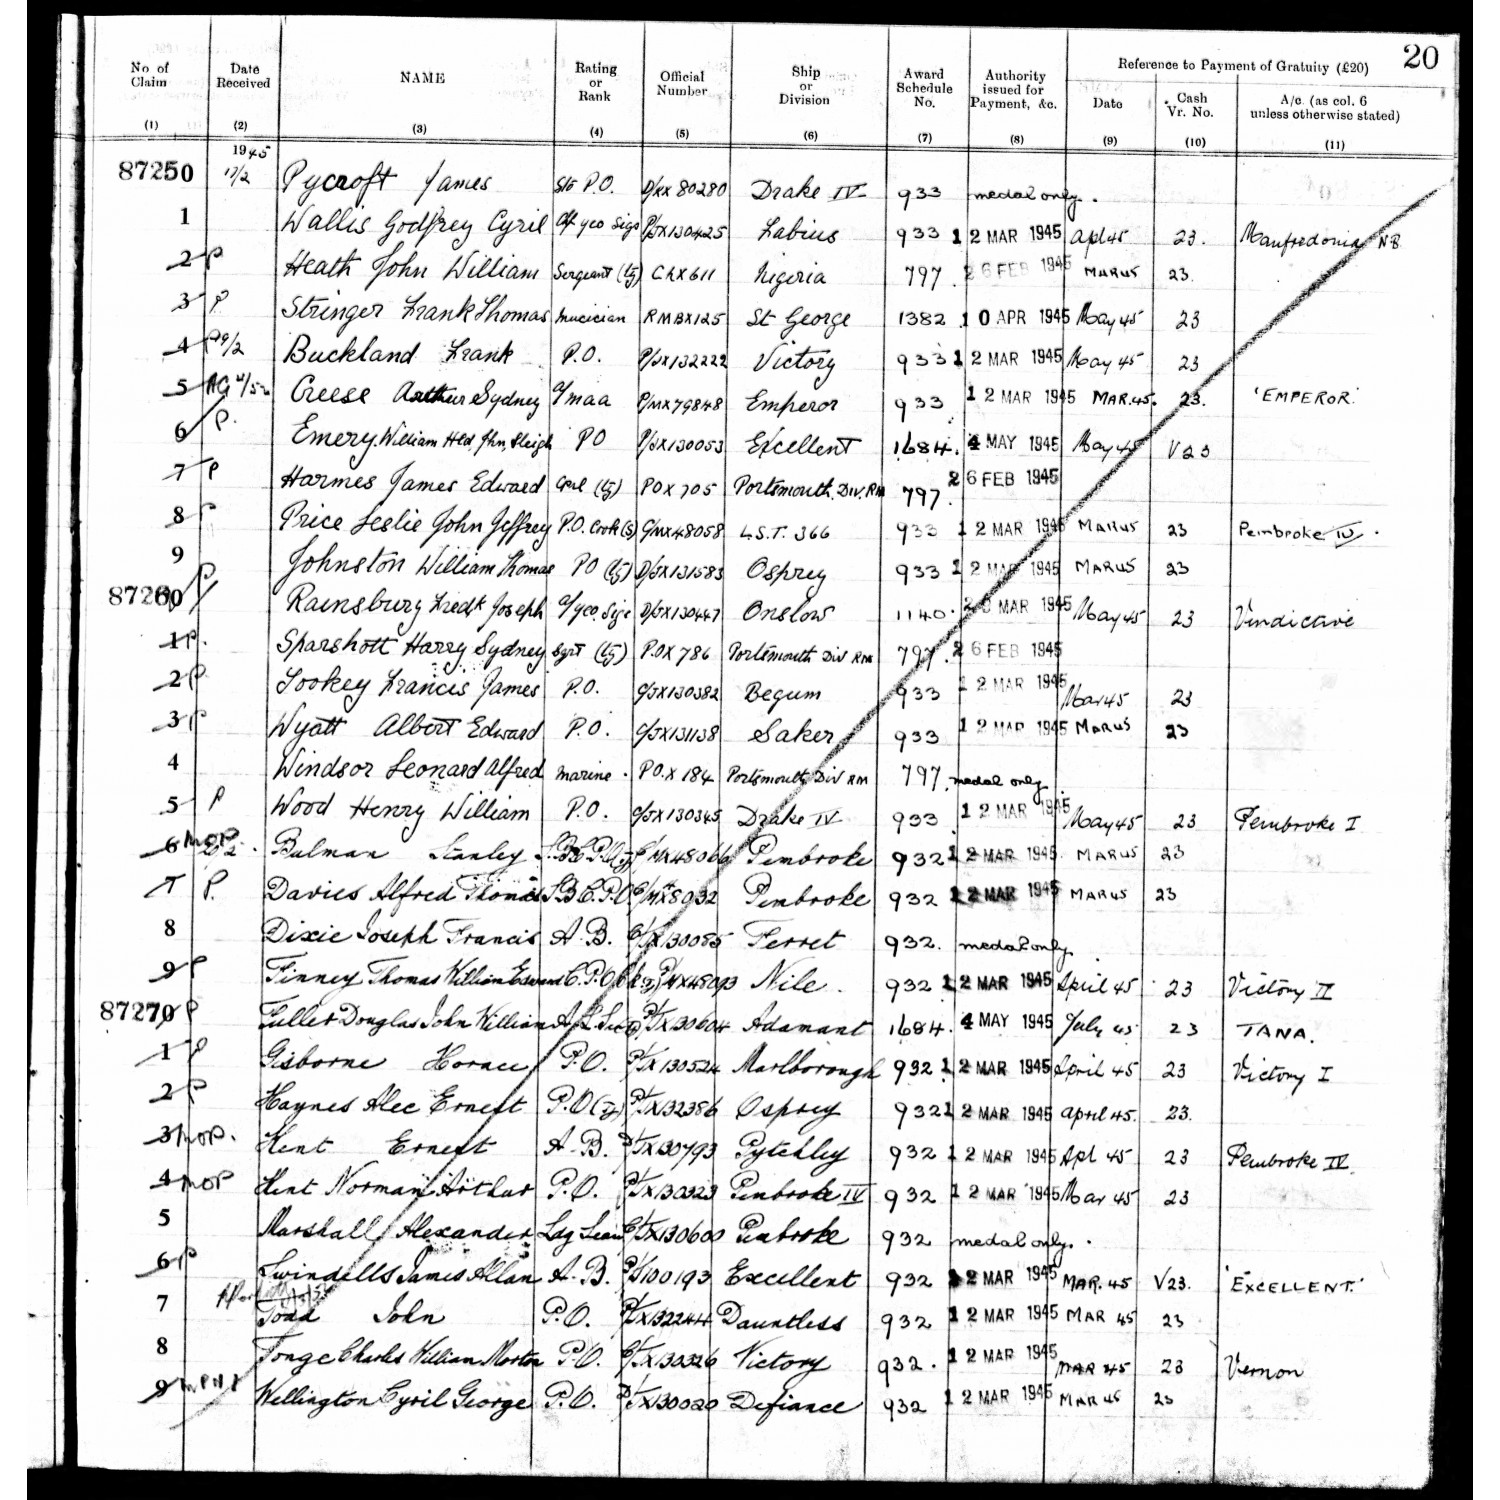 20
No. of Claim Date Received NAME Rating or Rank Official Number Ship or Division Award Schedule No. Authority issued for Payment, &c. Reference to Payment of Gratuity (£20) Date Cash Vr. No. A/c. (as col. 6 unless otherwise stated)
(1) (2) (3) (4) (5) (6) (7) (8) (9) (10) (11)
1945
87250 17/2 Pycroft James Sto P.O. D/KX 80280 Drake IV 933 medal only.
1 Wallis Godfrey Cyril P/JX130425 Labius 933 12 MAR 1945 Apl 45 23. Manfredonia NB
2 P Heath John William Sergeant (Ty) CHX611 Nigeria 797. 26 FEB 1945 MAR 45 23.
3 P Stringer Frank Thomas Musician RMBX125 St George 1382 10 APR 1945 May 45 23
4 P Buckland Frank P.O. P/JX132222 Victory 933 12 MAR 1945 May 45 23
5 Creese Arthur Sydney A/maa P/MX79848 Emperor 933 12 MAR 1945 MAR.45. 23. 'EMPEROR'
6 P. Emery William John Sleigh PO P/JX130053 Excellent 1684. 4 MAY 1945 May 45 V23
7 P Harmes James Edward Cpl (Ty) POX705 Portsmouth Div. RM 797. 26 FEB 1945
8 P Price Leslie John Jeffrey P.O. Cook (S) C/MX48058 L.S.T. 366 933 12 MAR 1945 MAR 45 23 Pembroke IV.
9 Johnston William Thomas PO (Ty) D/JX131583 Osprey 933 12 MAR 1945 MAR 45 23
87260 P Rainsbury Fredk Joseph A/yeo. Sigs D/JX130447 Onslow 1140. MAR 1945 May 45 23 Vindictive
1 P. Sparshott Harry Sydney Sgt (Ty) POX786 Portsmouth Div RM 797. 26 FEB 1945
2 P Tookey Francis James P.O. C/JX130382 Begum 933 12 MAR 1945 Mar 45 23
3 P Wyatt Albert Edward P.O. C/JX131138 Saker 933 12 MAR 1945 MAR 45 23
4 Windsor Leonard Alfred Marine. PO.X 184 Portsmouth Div RM 797. medal only
5 P Wood Henry William P.O. C/JX130345 Drake IV 933 12 MAR 1945 May 45 23 Pembroke I
6 MOP. Balman Stanley Pembroke 932 12 MAR 1945 MAR 45 23
7 P. Davies Alfred Thomas S.B.C.P.O. Pembroke 932 12 MAR 1945 MAR 45 23
8 Dixie Joseph Francis A.B. C/JX130085 Ferret 932. medal only
9 P Finney Thomas William Edward C.P.O. Nile. 932 12 MAR 1945 April 45 23 Victory II
87270 P Fuller Douglas John William P/JX130604 Adamant 1684. 4 MAY 1945 July 45 23 TANA.
1 P Gisborne Horace P.O. P/JX130524 Marlborough 932 12 MAR 1945 April 45 23 Victory I
2 P Haynes Alec Ernest P.O (Ty) P/JX132386 Osprey 932 12 MAR 1945 April 45. 23.
3 MOP. Kent Ernest A.B. P/JX130793 Pytchley 932 12 MAR 1945 Apl 45 23 Pembroke IV.
4 MOP Kent Norman Arthur P.O. P/JX130323 Pembroke IV 932 12 MAR 1945 Mar 45 23
5 Marshall Alexander Ldg Sean C/JX130600 Pembroke 932 medal only.
6 P Swindells James Allan A.B. P/J100193 Excellent 932 12 MAR 1945 MAR. 45 V23. 'EXCELLENT.'
7 Todd John P.O. P/JX132244 Dauntless 932 12 MAR 1945 MAR 45 23
8 Tonge Charles William Morton P.O. C/JX130326 Victory 932. 12 MAR 1945 MAR 45 23 Vernon
9 Wellington Cyril George P.O. D/JX130020 Defiance 932 12 MAR 1945 MAR 45 23